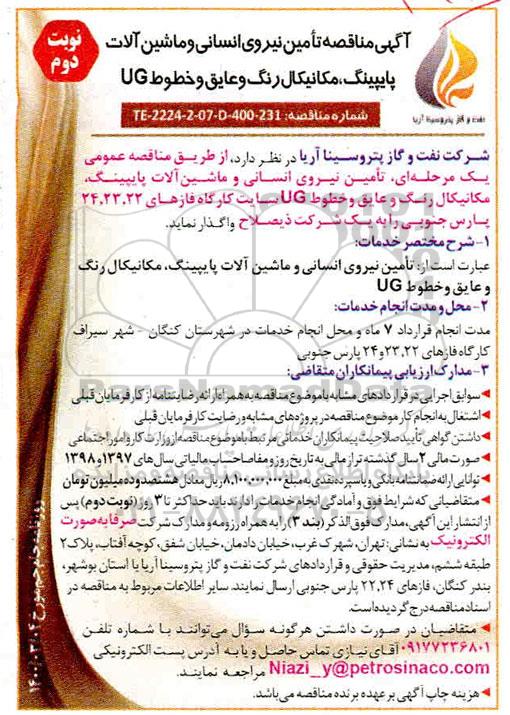 نوبت
دوم
آگهی مناقصه تأمین نیروی انسانی و ماشین آلات
پایپینگ، مکانیکال رنگ و عایق و خطوط UG
نفت و گاز پتروسینا آریا
شماره مناقصه: TE-2224-2-07-D-400-231
شرکت نفت و گاز پتروسینا آریا در نظر دارد، از طریق مناقصه عمومی
یک مرحله‌ای، تأمین نیروی انسانی و ماشین آلات پایپینگ،
مکانیکال رنگ و عایق و خطوط UG سایت کارگاه فازهای ۲۴،۲۳،۲۲
پارس جنوبی را به یک شرکت ذیصلاح واگذار نماید.
۱- شرح مختصر خدمات:
عبارت است از: تأمین نیروی انسانی و ماشین آلات پایپینگ، مکانیکال رنگ
و عایق و خطوط UG
۲- محل و مدت انجام خدمات:
مدت انجام قرارداد ۷ ماه و محل انجام خدمات در شهرستان کنگان - شهر سیراف
کارگاه فازهای ۲۳،۲۲ و ۲۴ پارس جنوبی
۳- مدارک ارزیابی پیمانکاران متقاضی:
◄سوابق اجرایی در قراردادهای مشابه با موضوع مناقصه به همراه ارائه رضایتنامه از کارفرمایان قبلی
◄اشتغال به انجام کار موضوع مناقصه در پروژه‌های مشابه و رضایت کارفرمایان قبلی
◄داشتن گواهی تأیید صلاحیت پیمانکاران خدماتی مرتبط با موضوع مناقصه از وزارت کار و امور اجتماعی
◄صورت مالی ۲ سال گذشته تراز مالی به تاریخ روز و مفاصا حساب مالیاتی سال های ۱۳۹۷ و ۱۳۹۸
◄توانایی ارائه ضمانتنامه بانکی و یا سپرده نقدی به مبلغ ۸,۱۰۰,۰۰۰,۰۰۰ ریال معادل هشتصد و ده میلیون تومان
◄متقاضیانی که شرایط فوق و آمادگی انجام خدمات را دارند باید حداکثر تا ۳ روز (نوبت دوم) پس
از انتشار این آگهی، مدارک فوق الذکر (بند ۳) را به همراه رزومه و مدارک شرکت صرفا به صورت
الکترونیک به نشانی: تهران، شهرک غرب، خیابان دادمان، خیابان شفق، کوچه آفتاب، پلاک ۲
طبقه ششم، مدیریت حقوقی و قراردادهای شرکت نفت و گاز پتروسینا آریا یا استان بوشهر،
بندر کنگان، فازهای ۲۲،۲۴ پارس جنوبی ارسال نمایند. سایر اطلاعات مربوط به مناقصه در
اسناد مناقصه درج گردیده است.
◄ متقاضیان در صورت داشتن هرگونه سؤال می‌توانند با شماره تلفن
۰۹۱۷۷۲۳۶۸۰۱ آقای نیازی تماس حاصل و یا به آدرس پست الکترونیکی
Niazi_y@petrosinaco.com مراجعه نمایند.
◄هزینه چاپ آگهی بر عهده برنده مناقصه می‌باشد.
روزنامه جام جم مورخ ۱۴۰۰/۰۳/۰۴